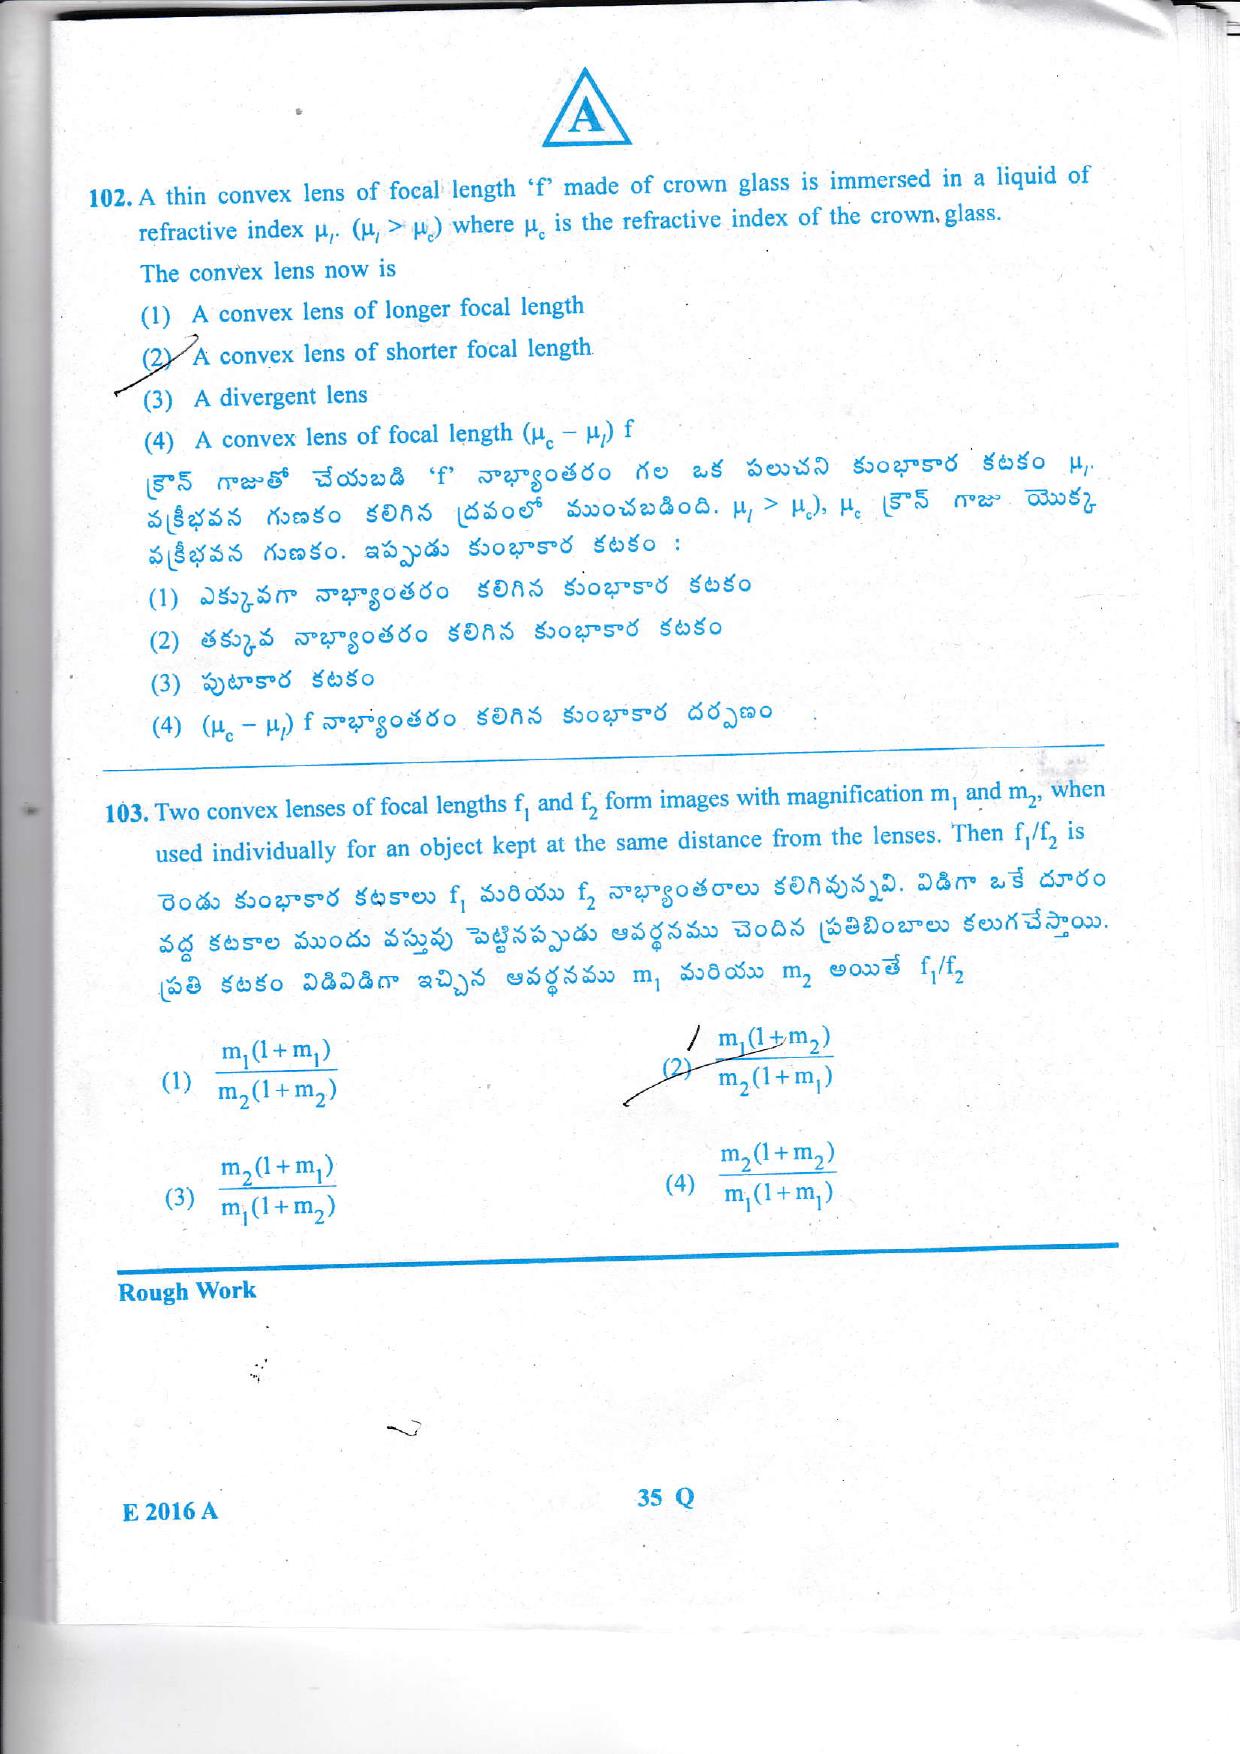 A
102. A thin convex lens of focal length ‘f’ made of crown glass is immersed in a liquid of
refractive index μl. (μl > μc) where μc is the refractive index of the crown glass.
The convex lens now is
(1) A convex lens of longer focal length
(2) A convex lens of shorter focal length
(3) A divergent lens
(4) A convex lens of focal length (μc – μl) f
క్రౌన్ గాజుతో చేయబడి ‘f’ నాభ్యాంతరం గల ఒక పలుచని కుంభాకార కటకం μl.
వక్రీభవన గుణకం కలిగిన ద్రవంలో ముంచబడింది. μl > μc), μc క్రౌన్ గాజు యొక్క
వక్రీభవన గుణకం. ఇప్పుడు కుంభాకార కటకం :
(1) ఎక్కువగా నాభ్యాంతరం కలిగిన కుంభాకార కటకం
(2) తక్కువ నాభ్యాంతరం కలిగిన కుంభాకార కటకం
(3) పుటాకార కటకం
(4) (μc – μl) f నాభ్యాంతరం కలిగిన కుంభాకార దర్పణం
103. Two convex lenses of focal lengths f1 and f2 form images with magnification m1 and m2, when
used individually for an object kept at the same distance from the lenses. Then f1/f2 is
రెండు కుంభాకార కటకాలు f1 మరియు f2 నాభ్యాంతరాలు కలిగివున్నవి. విడిగా ఒకే దూరం
వద్ద కటకాల ముందు వస్తువు పెట్టినప్పుడు ఆవర్థనము చెందిన ప్రతిబింబాలు కలుగచేస్తాయి.
ప్రతి కటకం విడివిడిగా ఇచ్చిన ఆవర్థనము m1 మరియు m2 అయితే f1/f2
(1) m1(1+m1) / m2(1+m2)
(2) m1(1+m2) / m2(1+m1)
(3) m2(1+m1) / m1(1+m2)
(4) m2(1+m2) / m1(1+m1)
Rough Work
E 2016 A
35 Q